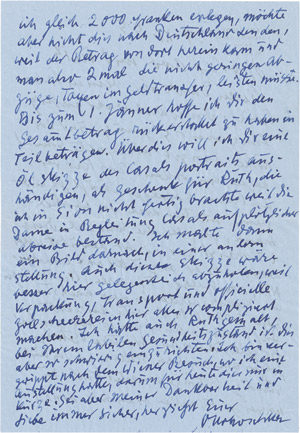 ich gleich 2000 Franken erlegen, möchte
aber nicht dies nach Deutschland senden,
weil der Betrag von dort herein kam und
man also 2 mal die nicht geringen Ab-
züge, Taxen im Geldtransfer, leisten müsste.
Bis zum 1. Jänner hoffe ich dir den
Gesamtbetrag rückerstattet zu haben in
Teilbeträgen. Überdies will ich dir eine
Öl skizze des Casals portraits aus-
händigen, als Geschenk für Ruth, die
ich in Sion nicht fertig brachte weil die
Dame in Begleitung Casals auf plötzlicher
Abreise bestand. Ich machte dann
ein Bild darnach, in einer andern
Stellung. Auch diese Skizze wäre
besser hier gelegentlich abzuholen, weil
Verpackung, Transport und offizielle
Zollscheererei hier alles so kompliziert
machen. Ich hätte auch Ruth gemalt,
bei Ihrem labilen Gesundheitszustand ist dies
aber so schwierig einzurichten. Ich bin ver-
grippt nach dem Wiener Besuch, wo ich eine
Ausstellung hatte, darum für heute dies nur in
Kürze. Sei aber meiner Dankbarkeit und
Liebe immer sicher, herzlichst Euer
OKokoschka